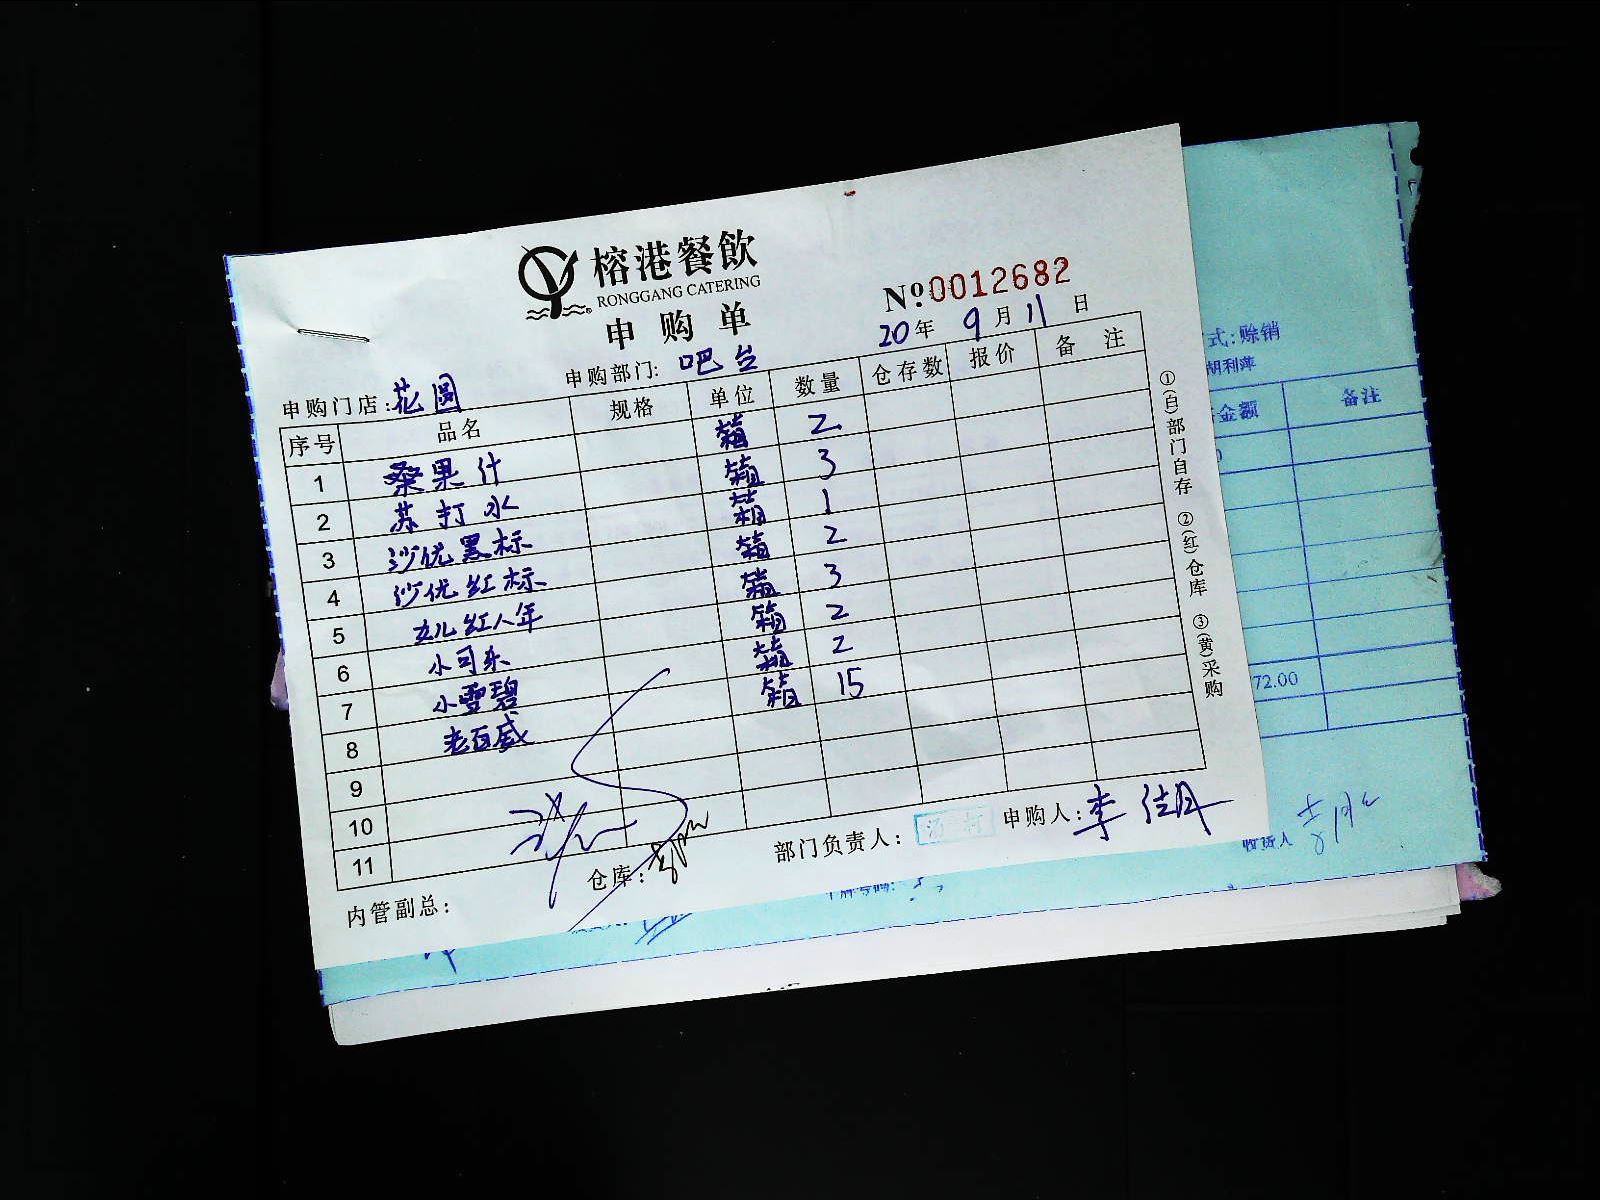 榕港餐飲
RONGGANG CATERING
申购单
№0012682
20年 9月 11日
申购门店:花圆 申购部门:吧台
序号 品名 规格 单位 数量 仓存数 报价 备注
1 桑果什 箱 2
2 苏打水 箱 3
3 沙优黑标 箱 1
4 沙优红标 箱 2
5 女儿红八年 箱 3
6 小可乐 箱 2
7 小雪碧 箱 2
8 老百威 箱 15
9
10
11
内管副总: 仓库: 部门负责人: 申购人:李佳月
①(白)部门自存 ②(红)仓库 ③(黄)采购
式:赊销
胡利萍
金额 备注
72.00
收货人